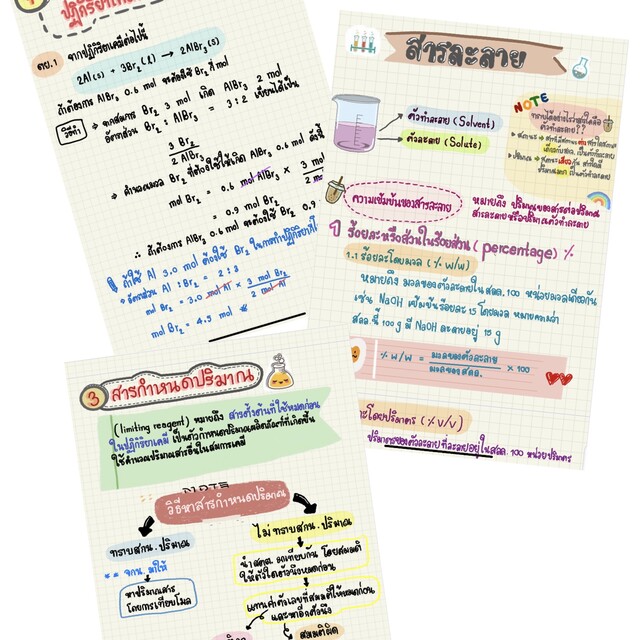 ตย.1 จากปฏิกิริยาเคมีต่อไปนี้
2Al(s) + 3Br₂(l) → 2AlBr₃(s)
ถ้าต้องการ AlBr₃ 0.6 mol จะต้องใช้ Br₂ กี่ mol
วิธีทำ ⇒ จากสมการ Br₂ 3 mol เกิด AlBr₃ 2 mol
อัตราส่วน Br₂ : AlBr₃ = 3:2 เขียนได้เป็น
3 Br₂
2 AlBr₃
⇒ คำนวณมวล Br₂ ที่ต้องใช้ให้เกิด AlBr₃ 0.6 mol ดังนี้
mol Br₂ = 0.6 mol AlBr₃ ×
= 0.9 mol Br₂
∴ ถ้าต้องการ AlBr₃ 0.6 mol จะต้องใช้ Br₂ 0.9
ถ้าใช้ Al 3.0 mol ต้องใช้ Br₂ ในการทำปฏิกิริยาเท่าใด
⇒ อัตราส่วน Al : Br₂ = 2:3
mol Br₂ = 3.0 mol Al × 3 mol Br₂
2 mol Al
mol Br₂ = 4.5 mol
สารละลาย
ตัวทำละลาย (Solvent)
ตัวละลาย (Solute)
NOTE
ความเข้มข้นของสารละลาย
หมายถึง ปริมาณของสารต่อปริมาณ
สารละลายหรือปริมาณตัวทำละลาย
1) ร้อยละหรือส่วนในร้อยส่วน (percentage) %
1.1 ร้อยละโดยมวล (% w/w)
หมายถึง มวลของตัวละลายในสลล. 100 หน่วยมวลเดียวกัน
เช่น NaOH เข้มข้นร้อยละ 15 โดยมวล หมายความว่า
สลล.นี้ 100 g มี NaOH ละลายอยู่ 15 g
% w/w = มวลของตัวละลาย × 100
มวลของสลล.
ละโดยปริมาตร (% v/v)
ปริมาตรของตัวละลายที่ละลายอยู่ในสลล. 100 หน่วยปริมาตร
3 สารกำหนดปริมาณ
(limiting reagent) หมายถึง สารตั้งต้นที่ใช้หมดก่อน
ในปฏิกิริยาเคมี เป็นตัวกำหนดปริมาณผลิตภัณฑ์ที่เกิดขึ้น
ใช้คำนวณปริมาณสารอื่นในสมการเคมี
วิธีหาสารกำหนดปริมาณ
ทราบสกน. ปริมาณ
** จกน. มาให้
หาปริมาณสาร
โดยการเทียบโมล
ไม่ทราบสกน. ปริมาณ
นำสตต. มาเทียบกัน โดยสมมติ
ให้ตัวใดตัวนึงหมดก่อน
แทนค่าตัวเลขที่สมมติให้หมดก่อน
และหาอีกตัวนึง
สมมติผิด